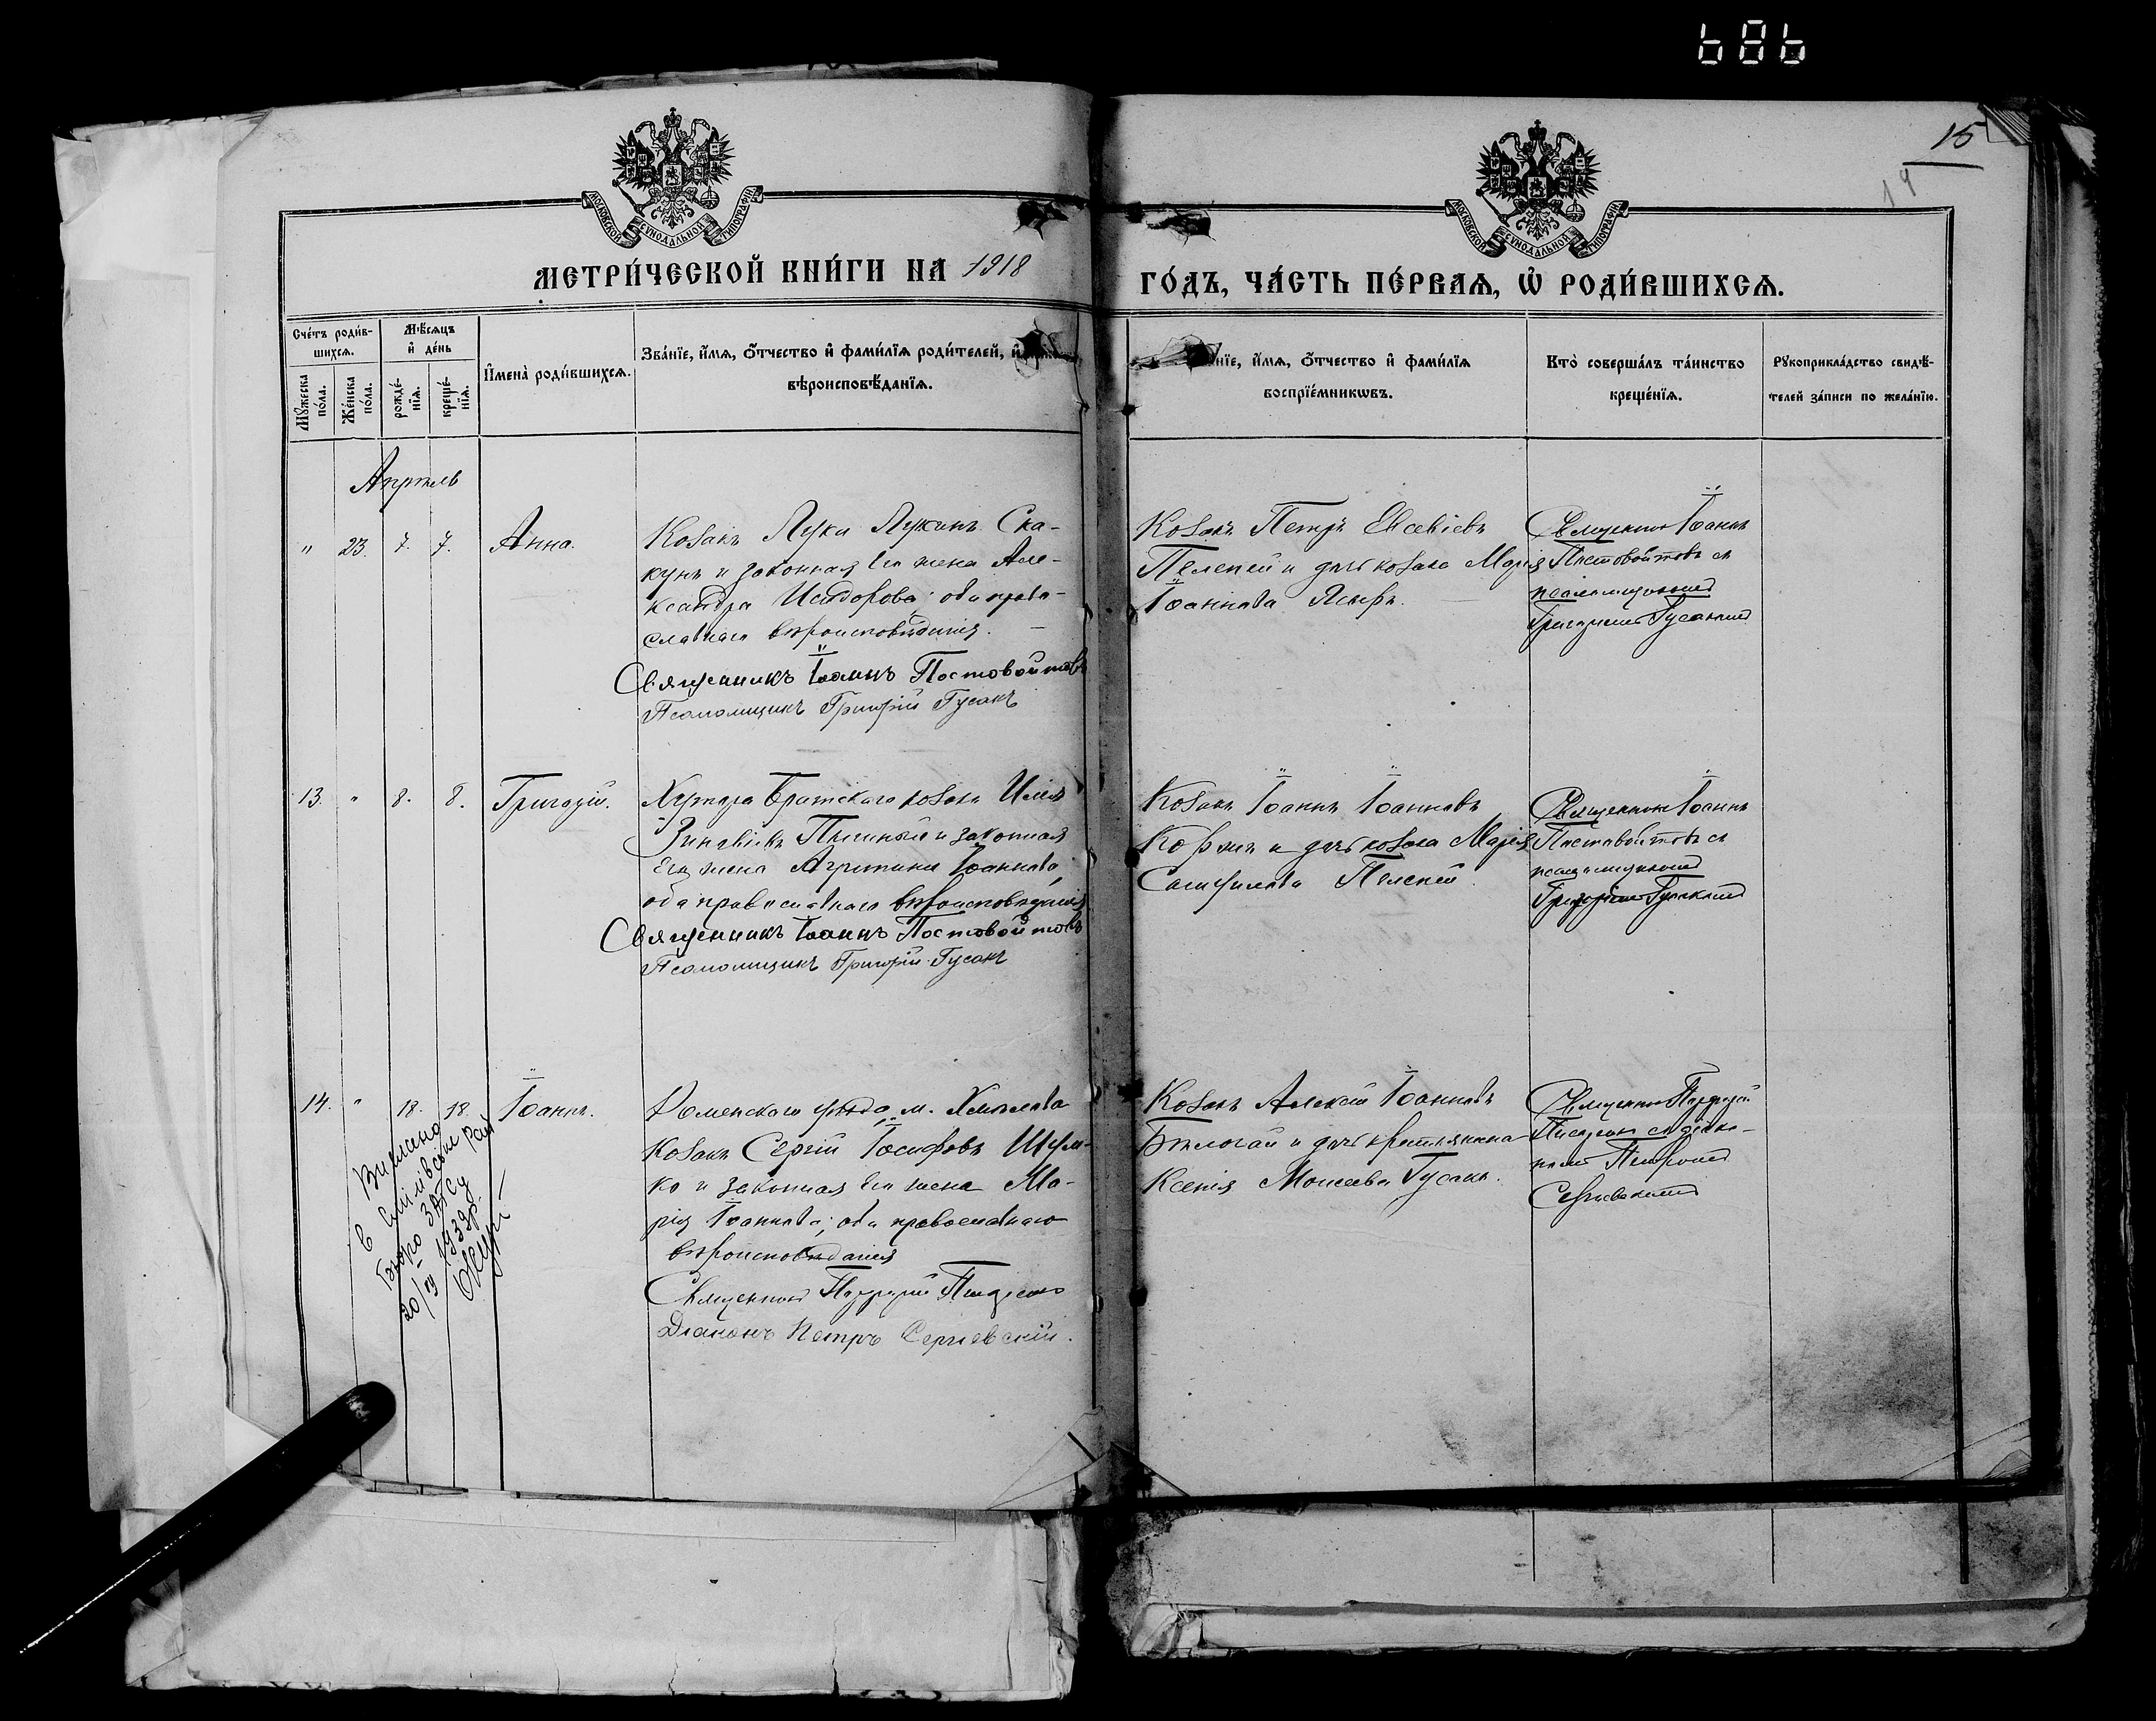 686
15
14
МОСКОВСКОЙ СУНОДАЛЬНОЙ ТИПОГРАФІИ
МОСКОВСКОЙ СУНОДАЛЬНОЙ ТИПОГРАФІИ
МЕТРИ́ЧЕСКОЙ КНИ́ГИ НА 1918
ГО́ДЪ, ЧА́СТЬ ПЕ́РВАѦ, Ѡ҆ РОДИ́ВШИХСѦ.
Сче́тъ роди́в-
шихсѧ.
Мꙋ́жеска
по́ла.
Же́нска
по́ла.
Мѣ́сѧцъ
и҆ де́нь
рожде́-
нїѧ.
креще́-
нїѧ.
И҆мена̀ роди́вшихсѧ.
Зва́нїе, и҆́мѧ, ѻ҆́тчество и҆ фами́лїѧ роди́телей, и҆
вѣроисповѣ́данїѧ.
нїе, и҆́мѧ, ѻ҆́тчество и҆ фами́лїѧ
воспрїе́мникѡвъ.
Кто̀ соверша́лъ та́инство
креще́нїѧ.
Рꙋкоприкла́дство свидѣ́-
телей за́писи по жела́нїю.
Апрѣль
" 23. 7. 7. Анна.
Козакъ Лука Лукинъ Ска-
кунъ и законная его жена Але-
ксандра Исидорова; оба право-
славнаго вѣроисповѣданія.
Священникъ Іоаннъ Постовойтовъ
Псаломщикъ Григорій Гусакъ
Козакъ Петръ Евсевіевъ
Пелепей и дочь козака Марія
Іоаннова
Священникъ Іоаннъ
Постовойтовъ съ
псаломщикомъ
Григоріемъ Гусакомъ
13. " 8. 8. Григорій.
Хутора Братскаго козакъ Илія
Зиновіевъ и законная
его жена Агрипина Іоаннова,
оба православнаго вѣроисповѣданія
Священникъ Іоаннъ Постовойтовъ
Псаломщикъ Григорій Гусакъ
Козакъ Іоаннъ Іоанновъ
и дочь козака Марія
Пелепей.
Священникъ Іоаннъ
Постовойтовъ съ
псаломщикомъ
Григоріемъ Гусакомъ
14. " 18. 18. Іоаннъ.
Роменскаго уѣзда, м. Хмѣлова
козакъ Сергій Іосифовъ Шум-
ко и законная его жена Ма-
рія Іоаннова; оба православнаго
вѣроисповѣданія
Священникъ
Діаконъ Петръ Сергіевскій.
Козакъ Алексій Іоанновъ
и дочь крестьянина
Ксенія Моисеева Гусакъ.
Священникъ
съ діако-
номъ Петромъ
Сергіевскимъ
Видана
в Райо
Бюро ЗАГСу
20/IV 1939р.